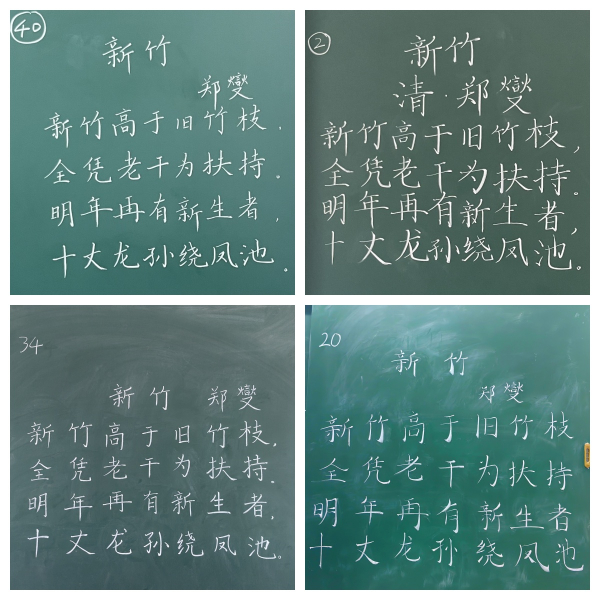 40
新竹
郑燮
新竹高于旧竹枝,
全凭老干为扶持。
明年再有新生者,
十丈龙孙绕凤池。
2
新竹
清·郑燮
新竹高于旧竹枝,
全凭老干为扶持。
明年再有新生者,
十丈龙孙绕凤池。
34
新竹 郑燮
新竹高于旧竹枝,
全凭老干为扶持.
明年再有新生者,
十丈龙孙绕凤池。
20
新竹
郑燮
新竹高于旧竹枝
全凭老干为扶持
明年再有新生者
十丈龙孙绕凤池